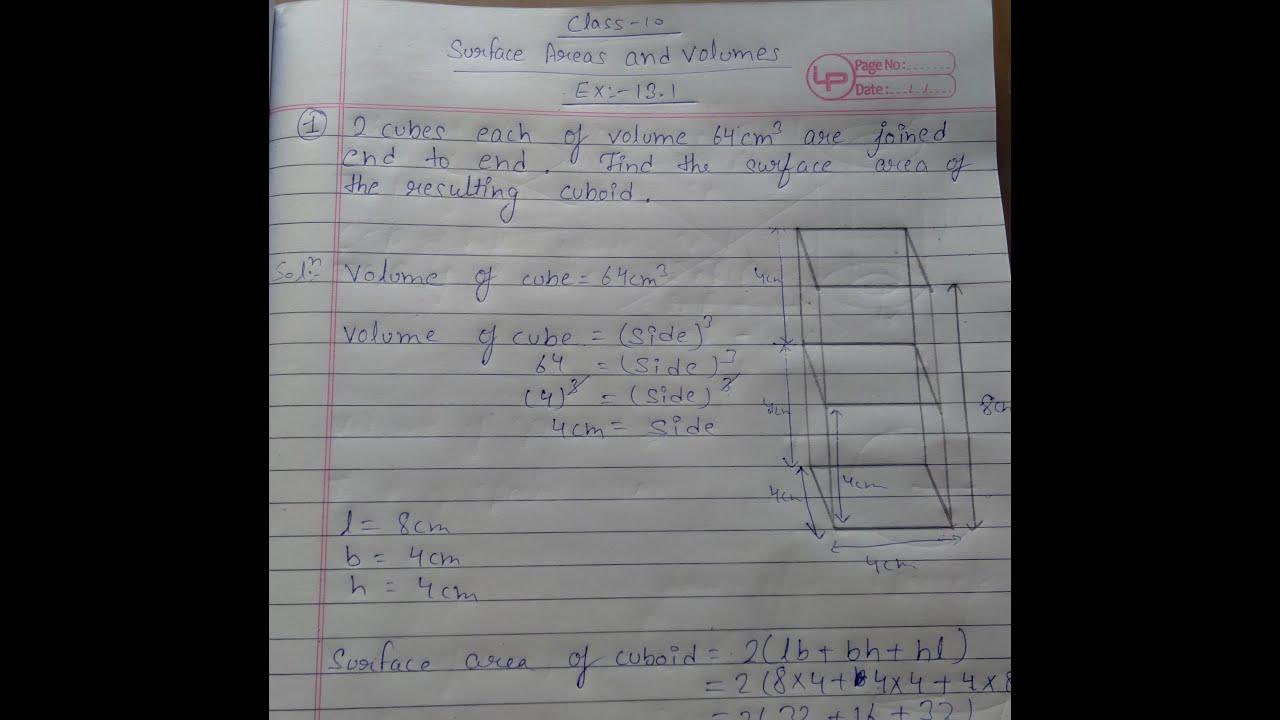 Class-10
Surface Areas and Volumes
Ex:-13.1
LP
Page No:.......
Date:...../...../.....
① 2 cubes each of volume 64cm³ are joined
end to end. Find the surface area of
the resulting cuboid.
Solⁿ:- Volume of cube = 64cm³
Volume of cube = (Side)³
64 = (Side)³
(4)³ = (Side)³
4cm = Side
4cm
4cm
8cm
4cm
4cm
4cm
l = 8cm
b = 4cm
h = 4cm
Surface area of cuboid = 2(lb + bh + hl)
= 2(8×4+4×4+4×8
= 2(32+16+32)